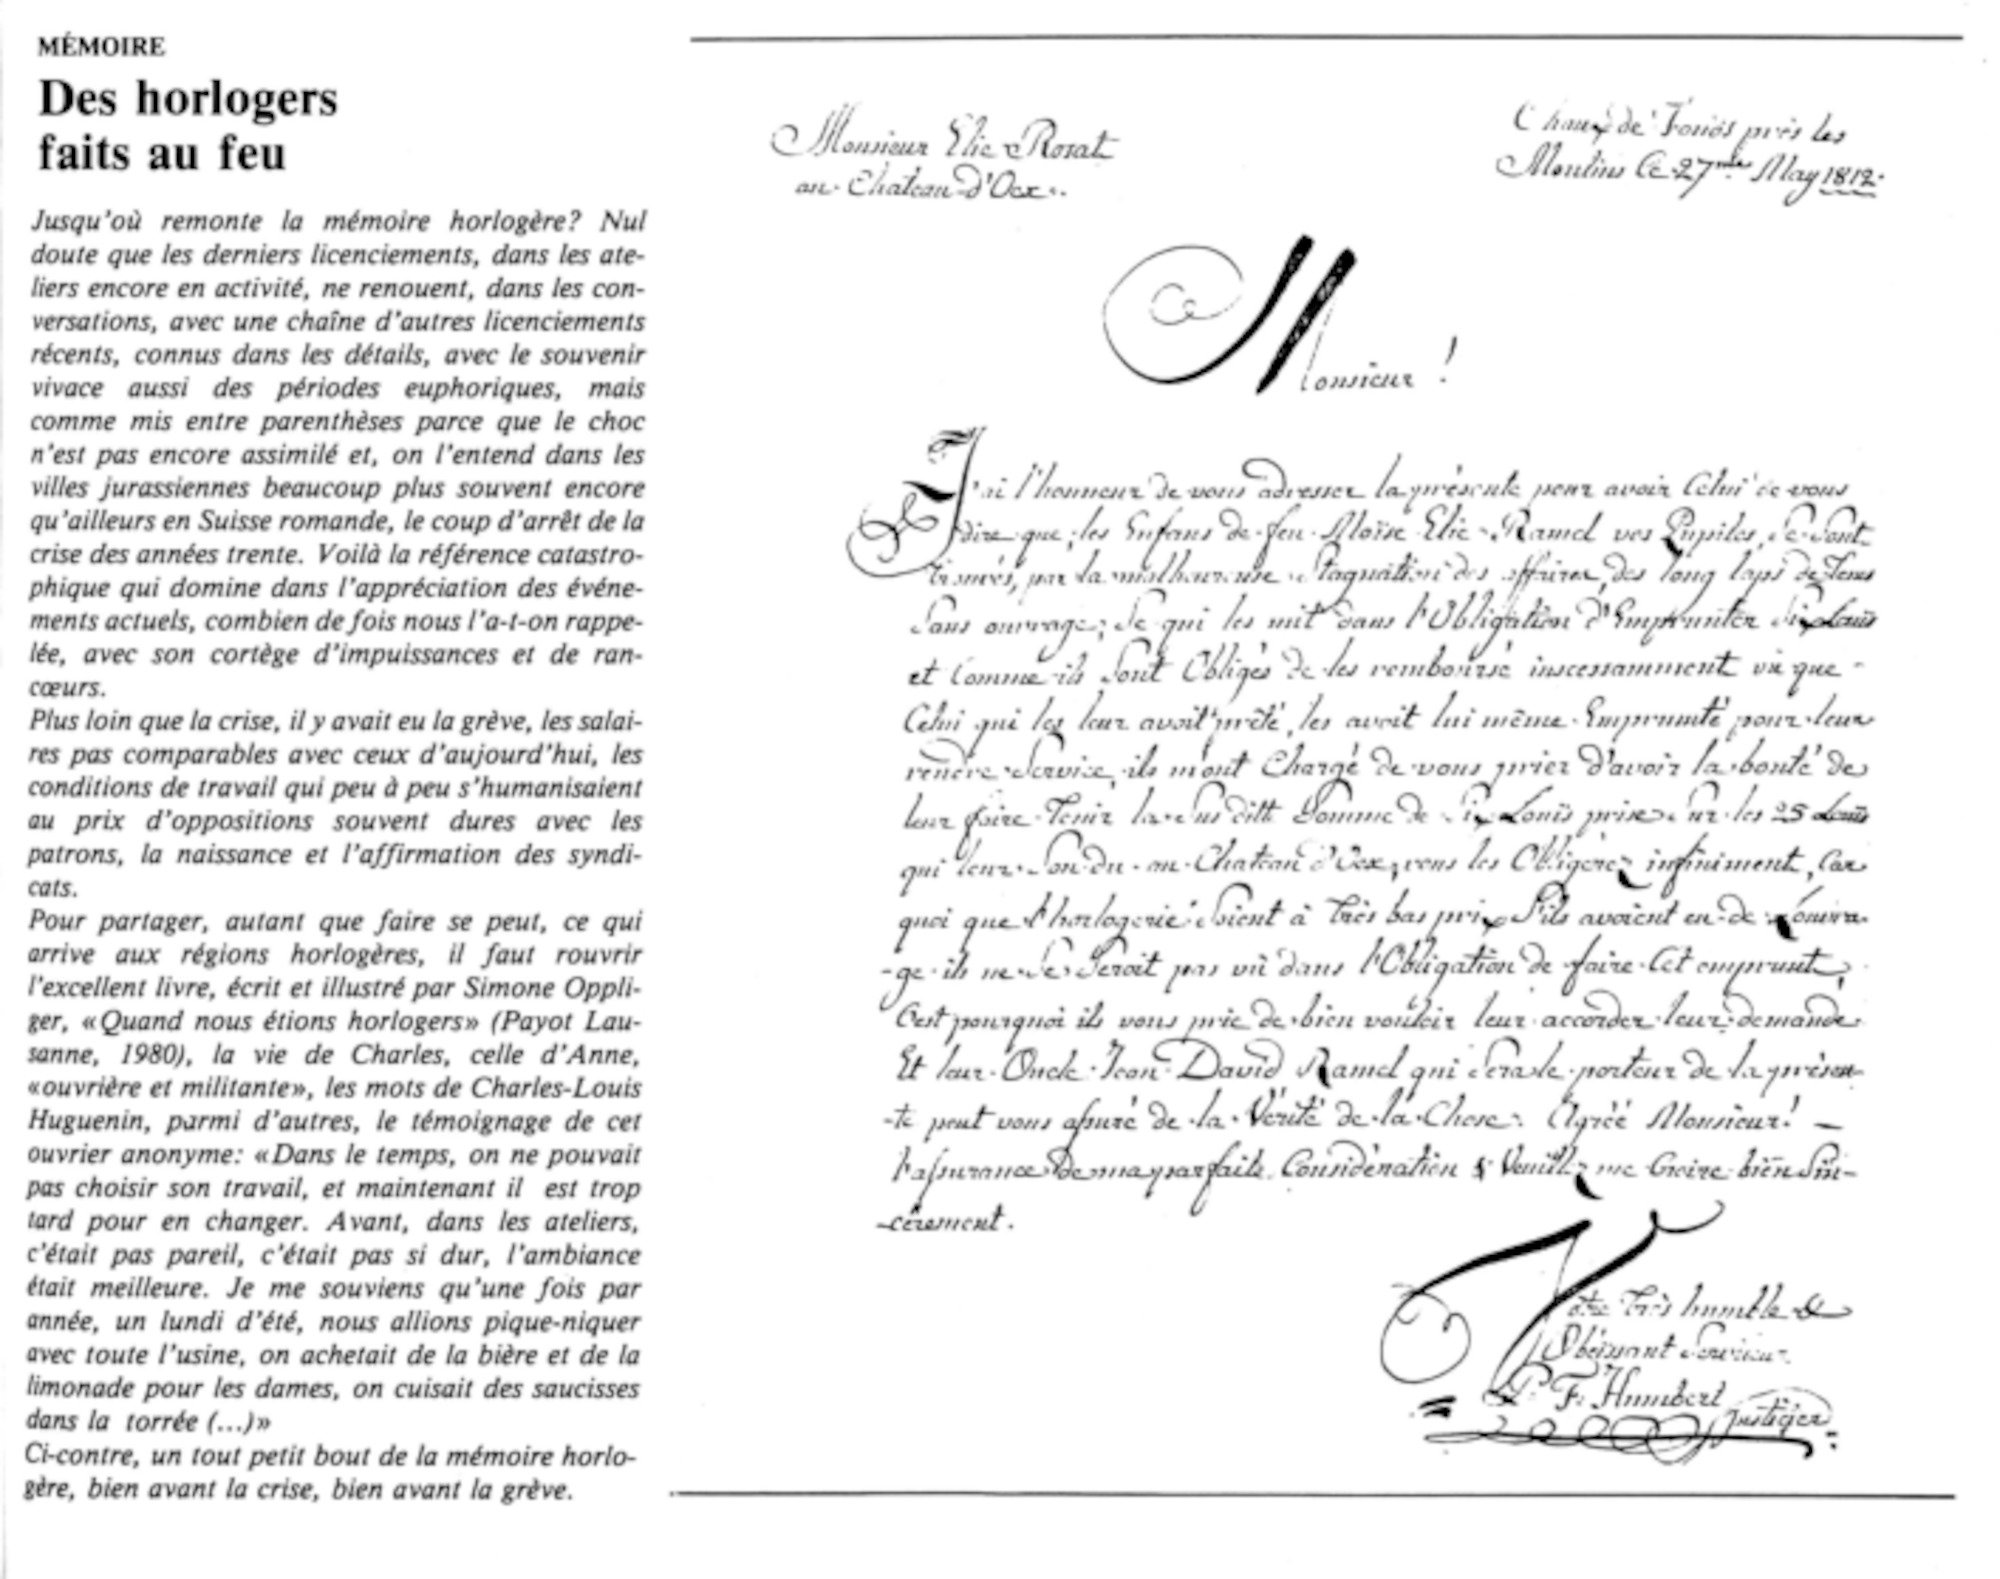 MÉMOIRE
Des horlogers
faits au feu
Jusqu'où remonte la mémoire horlogère? Nul
doute que les derniers licenciements, dans les ate-
liers encore en activité, ne renouent, dans les con-
versations, avec une chaîne d'autres licenciements
récents, connus dans les détails, avec le souvenir
vivace aussi des périodes euphoriques, mais
comme mis entre parenthèses parce que le choc
n'est pas encore assimilé et, on l'entend dans les
villes jurassiennes beaucoup plus souvent encore
qu'ailleurs en Suisse romande, le coup d'arrêt de la
crise des années trente. Voilà la référence catastro-
phique qui domine dans l'appréciation des événe-
ments actuels, combien de fois nous l'a-t-on rappe-
lée, avec son cortège d'impuissances et de ran-
cœurs.
Plus loin que la crise, il y avait eu la grève, les salai-
res pas comparables avec ceux d'aujourd'hui, les
conditions de travail qui peu à peu s'humanisaient
au prix d'oppositions souvent dures avec les
patrons, la naissance et l'affirmation des syndi-
cats.
Pour partager, autant que faire se peut, ce qui
arrive aux régions horlogères, il faut rouvrir
l'excellent livre, écrit et illustré par Simone Oppli-
ger, «Quand nous étions horlogers» (Payot Lau-
sanne, 1980), la vie de Charles, celle d'Anne,
«ouvrière et militante», les mots de Charles-Louis
Huguenin, parmi d'autres, le témoignage de cet
ouvrier anonyme: «Dans le temps, on ne pouvait
pas choisir son travail, et maintenant il est trop
tard pour en changer. Avant, dans les ateliers,
c'était pas pareil, c'était pas si dur, l'ambiance
était meilleure. Je me souviens qu'une fois par
année, un lundi d'été, nous allions pique-niquer
avec toute l'usine, on achetait de la bière et de la
limonade pour les dames, on cuisait des saucisses
dans la torrée (...)»
Ci-contre, un tout petit bout de la mémoire horlo-
gère, bien avant la crise, bien avant la grève.
Monsieur Elie Rosat
au Chateau d'Oex.
Chaux de Fonds près les
Moulins Ce 27me May 1812.
Monsieur !
J'ai l'honneur de vous adresser la présente pour avoir Celui de vous
dire que, les Enfans de feu Moïse Elie Ramel vos Pupiles, se sont
trouvés, par la malheureuse Stagnation des affaires, des long laps de Tems
Sans ouvrage; Se qui les mit dans l'Obligation d'Emprunter Six Louis
et Comme ils sont Obligés de les remboursé inscessamment vu que
Celui qui les leur avoit prêté, les avoit lui même Emprunté pour leur
rendre Service, ils m'ont Chargé de vous prier d'avoir la bonté de
leur faire Tenir la Sus ditte Somme de Six Louis prise Sur les 25 Louis
qui leur Son du au Chateau d'Oex, vous les Obligerez infiniment, Car
quoi que l'horlogerie Soient à très bas prix S'ils avoient eu de l'ouvra-
-ge ils ne Se Seroit pas vû dans l'Obligation de faire Cet emprunt,
C'est pourquoi ils vous prie de bien vouloir leur accorder leur demande
Et leur Oncle Jean David Ramel qui Sera le porteur de la présen-
-te peut vous assuré de la Vérité de la Chose. Agréé Monsieur! —
l'assurance de ma parfaite Considération & Veuillez me Croire bien Sin-
-cèrement.
Votre très humble &
Obéissant Serviteur
P. F. Humbert
justicier